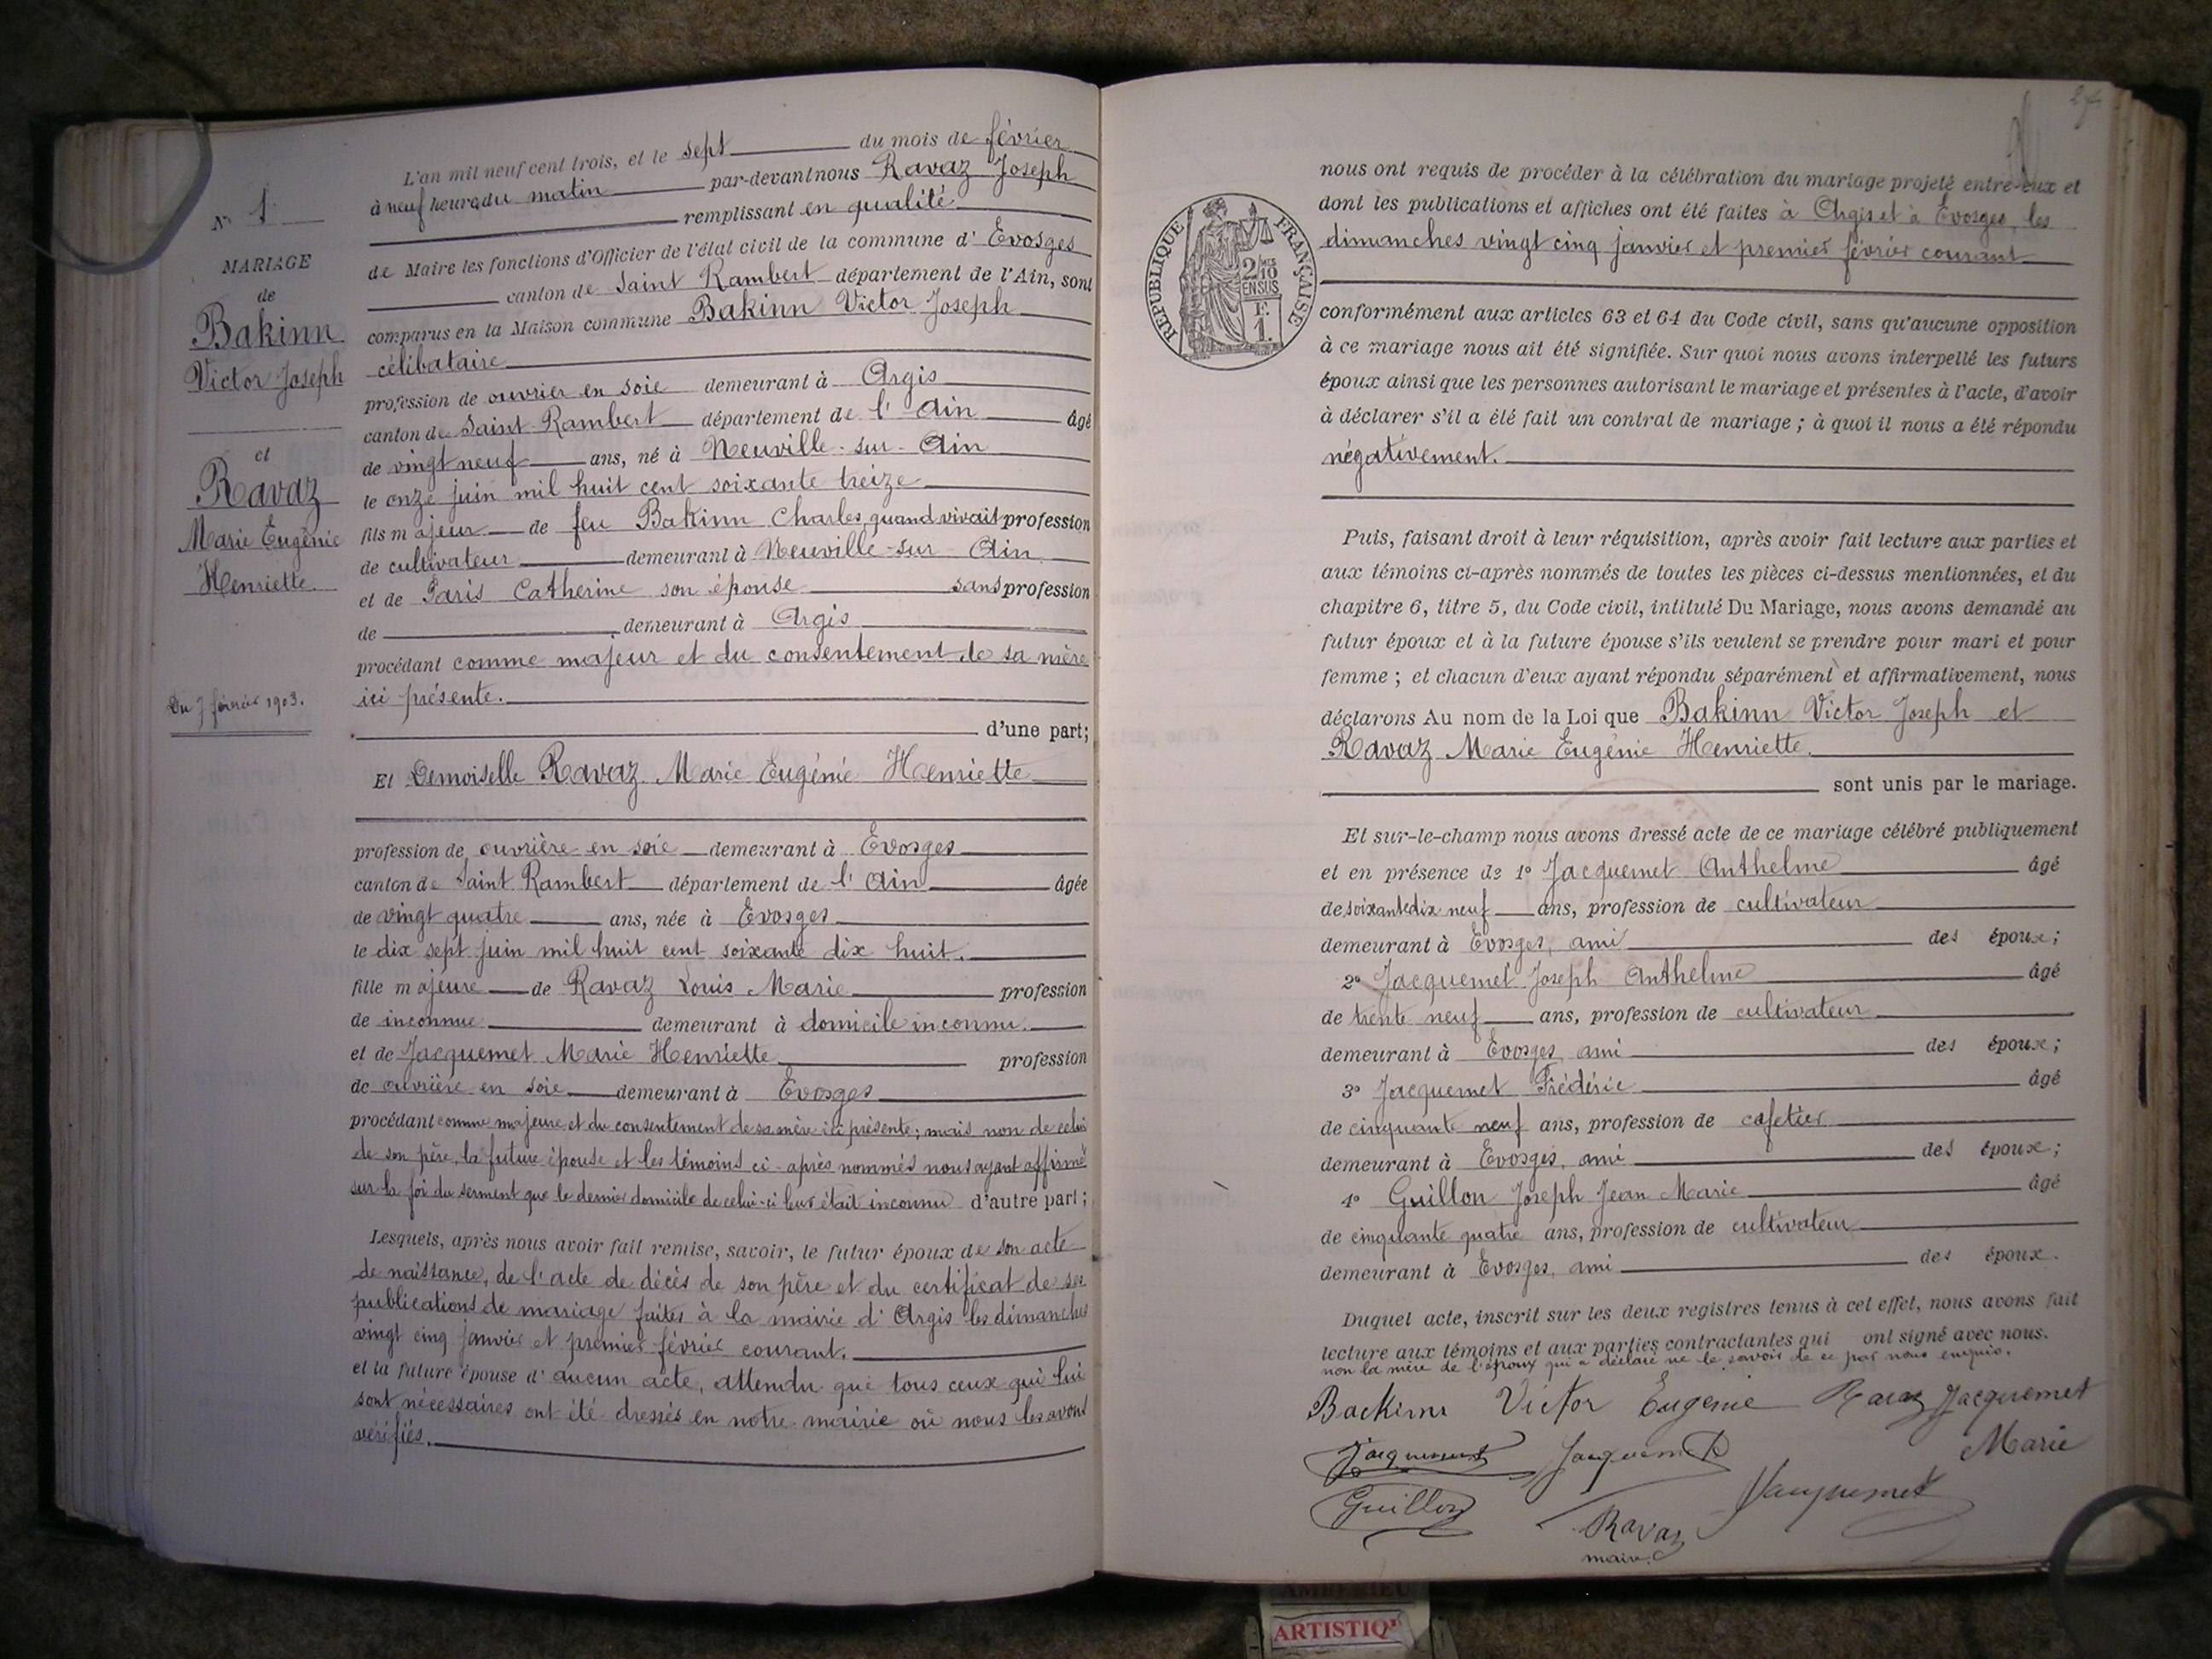 N° 1
MARIAGE
de
Bakinn
Victor Joseph
et
Ravaz
Marie Eugénie
Henriette.
Du 7 février 1903.
L'an mil neuf cent trois, et le sept du mois de février
à neuf heures du matin par-devant nous Ravaz Joseph
remplissant en qualité
de Maire les fonctions d'Officier de l'état civil de la commune d' Evosges
canton de Saint Rambert département de l'Ain, sont
comparus en la Maison commune Bakinn Victor Joseph
célibataire
profession de ouvrier en soie demeurant à Argis
canton de Saint Rambert département de l' Ain âgé
de vingt neuf ans, né à Neuville-sur-Ain
le onze juin mil huit cent soixante treize
fils majeur de feu Bakinn Charles, quand vivait profession
de cultivateur demeurant à Neuville-sur-Ain
et de Paris Catherine son épouse sans profession
de demeurant à Argis
procédant comme majeur et du consentement de sa mère
ici présente.
d'une part;
Et Demoiselle Ravaz Marie Eugénie Henriette
profession de ouvrière en soie demeurant à Evosges
canton de Saint Rambert département de l' Ain âgée
de vingt quatre ans, née à Evosges
le dix sept juin mil huit cent soixante dix huit.
fille majeure de Ravaz Louis Marie profession
de inconnue demeurant à domicile inconnu.
et de Jacquemet Marie Henriette profession
de ouvrière en soie demeurant à Evosges
procédant comme majeure et du consentement de sa mère ici présente; mais non de celui
de son père, la future épouse et les témoins ci-après nommés nous ayant affirmé
sur la foi du serment que le dernier domicile de celui-ci leur était inconnu d'autre part;
Lesquels, après nous avoir fait remise, savoir, le futur époux de son acte
de naissance, de l'acte de décès de son père et du certificat de ses
publications de mariage faites à la mairie d'Argis les dimanches
vingt cinq janvier et premier février courant.
et la future épouse d' aucun acte, attendu que tous ceux qui lui
sont nécessaires ont été dressés en notre mairie où nous les avons
vérifiés.
RÉPUBLIQUE FRANÇAISE
2 10 MES
EN SUS
F.
1.
nous ont requis de procéder à la célébration du mariage projeté entre eux et
dont les publications et affiches ont été faites à Argis et à Evosges, les
dimanches vingt cinq janvier et premier février courant
conformément aux articles 63 et 64 du Code civil, sans qu'aucune opposition
à ce mariage nous ait été signifiée. Sur quoi nous avons interpellé les futurs
époux ainsi que les personnes autorisant le mariage et présentes à l'acte, d'avoir
à déclarer s'il a été fait un contrat de mariage; à quoi il nous a été répondu
négativement.
Puis, faisant droit à leur réquisition, après avoir fait lecture aux parties et
aux témoins ci-après nommés de toutes les pièces ci-dessus mentionnées, et du
chapitre 6, titre 5, du Code civil, intitulé Du Mariage, nous avons demandé au
futur époux et à la future épouse s'ils veulent se prendre pour mari et pour
femme; et chacun d'eux ayant répondu séparément et affirmativement, nous
déclarons Au nom de la Loi que Bakinn Victor Joseph et
Ravaz Marie Eugénie Henriette.
sont unis par le mariage.
Et sur-le-champ nous avons dressé acte de ce mariage célébré publiquement
et en présence de 1° Jacquemet Anthelme âgé
de soixante dix neuf ans, profession de cultivateur
demeurant à Evosges, ami des époux;
2° Jacquemet Joseph Anthelme âgé
de trente neuf ans, profession de cultivateur
demeurant à Evosges, ami des époux;
3° Jacquemet Frédéric âgé
de cinquante neuf ans, profession de cafetier
demeurant à Evosges, ami des époux;
4° Guillon Joseph Jean Marie âgé
de cinquante quatre ans, profession de cultivateur
demeurant à Evosges, ami des époux.
Duquel acte, inscrit sur les deux registres tenus à cet effet, nous avons fait
lecture aux témoins et aux parties contractantes qui ont signé avec nous.
non la mère de l'époux qui a déclaré ne le savoir de ce par nous enquis.
Backinn Victor Eugenie Ravaz Jacquemet
Marie
Jacquemet Jacquemet
Jacquemet
Guillon
Ravaz
maire
AMBERIEU
ARTISTIQ